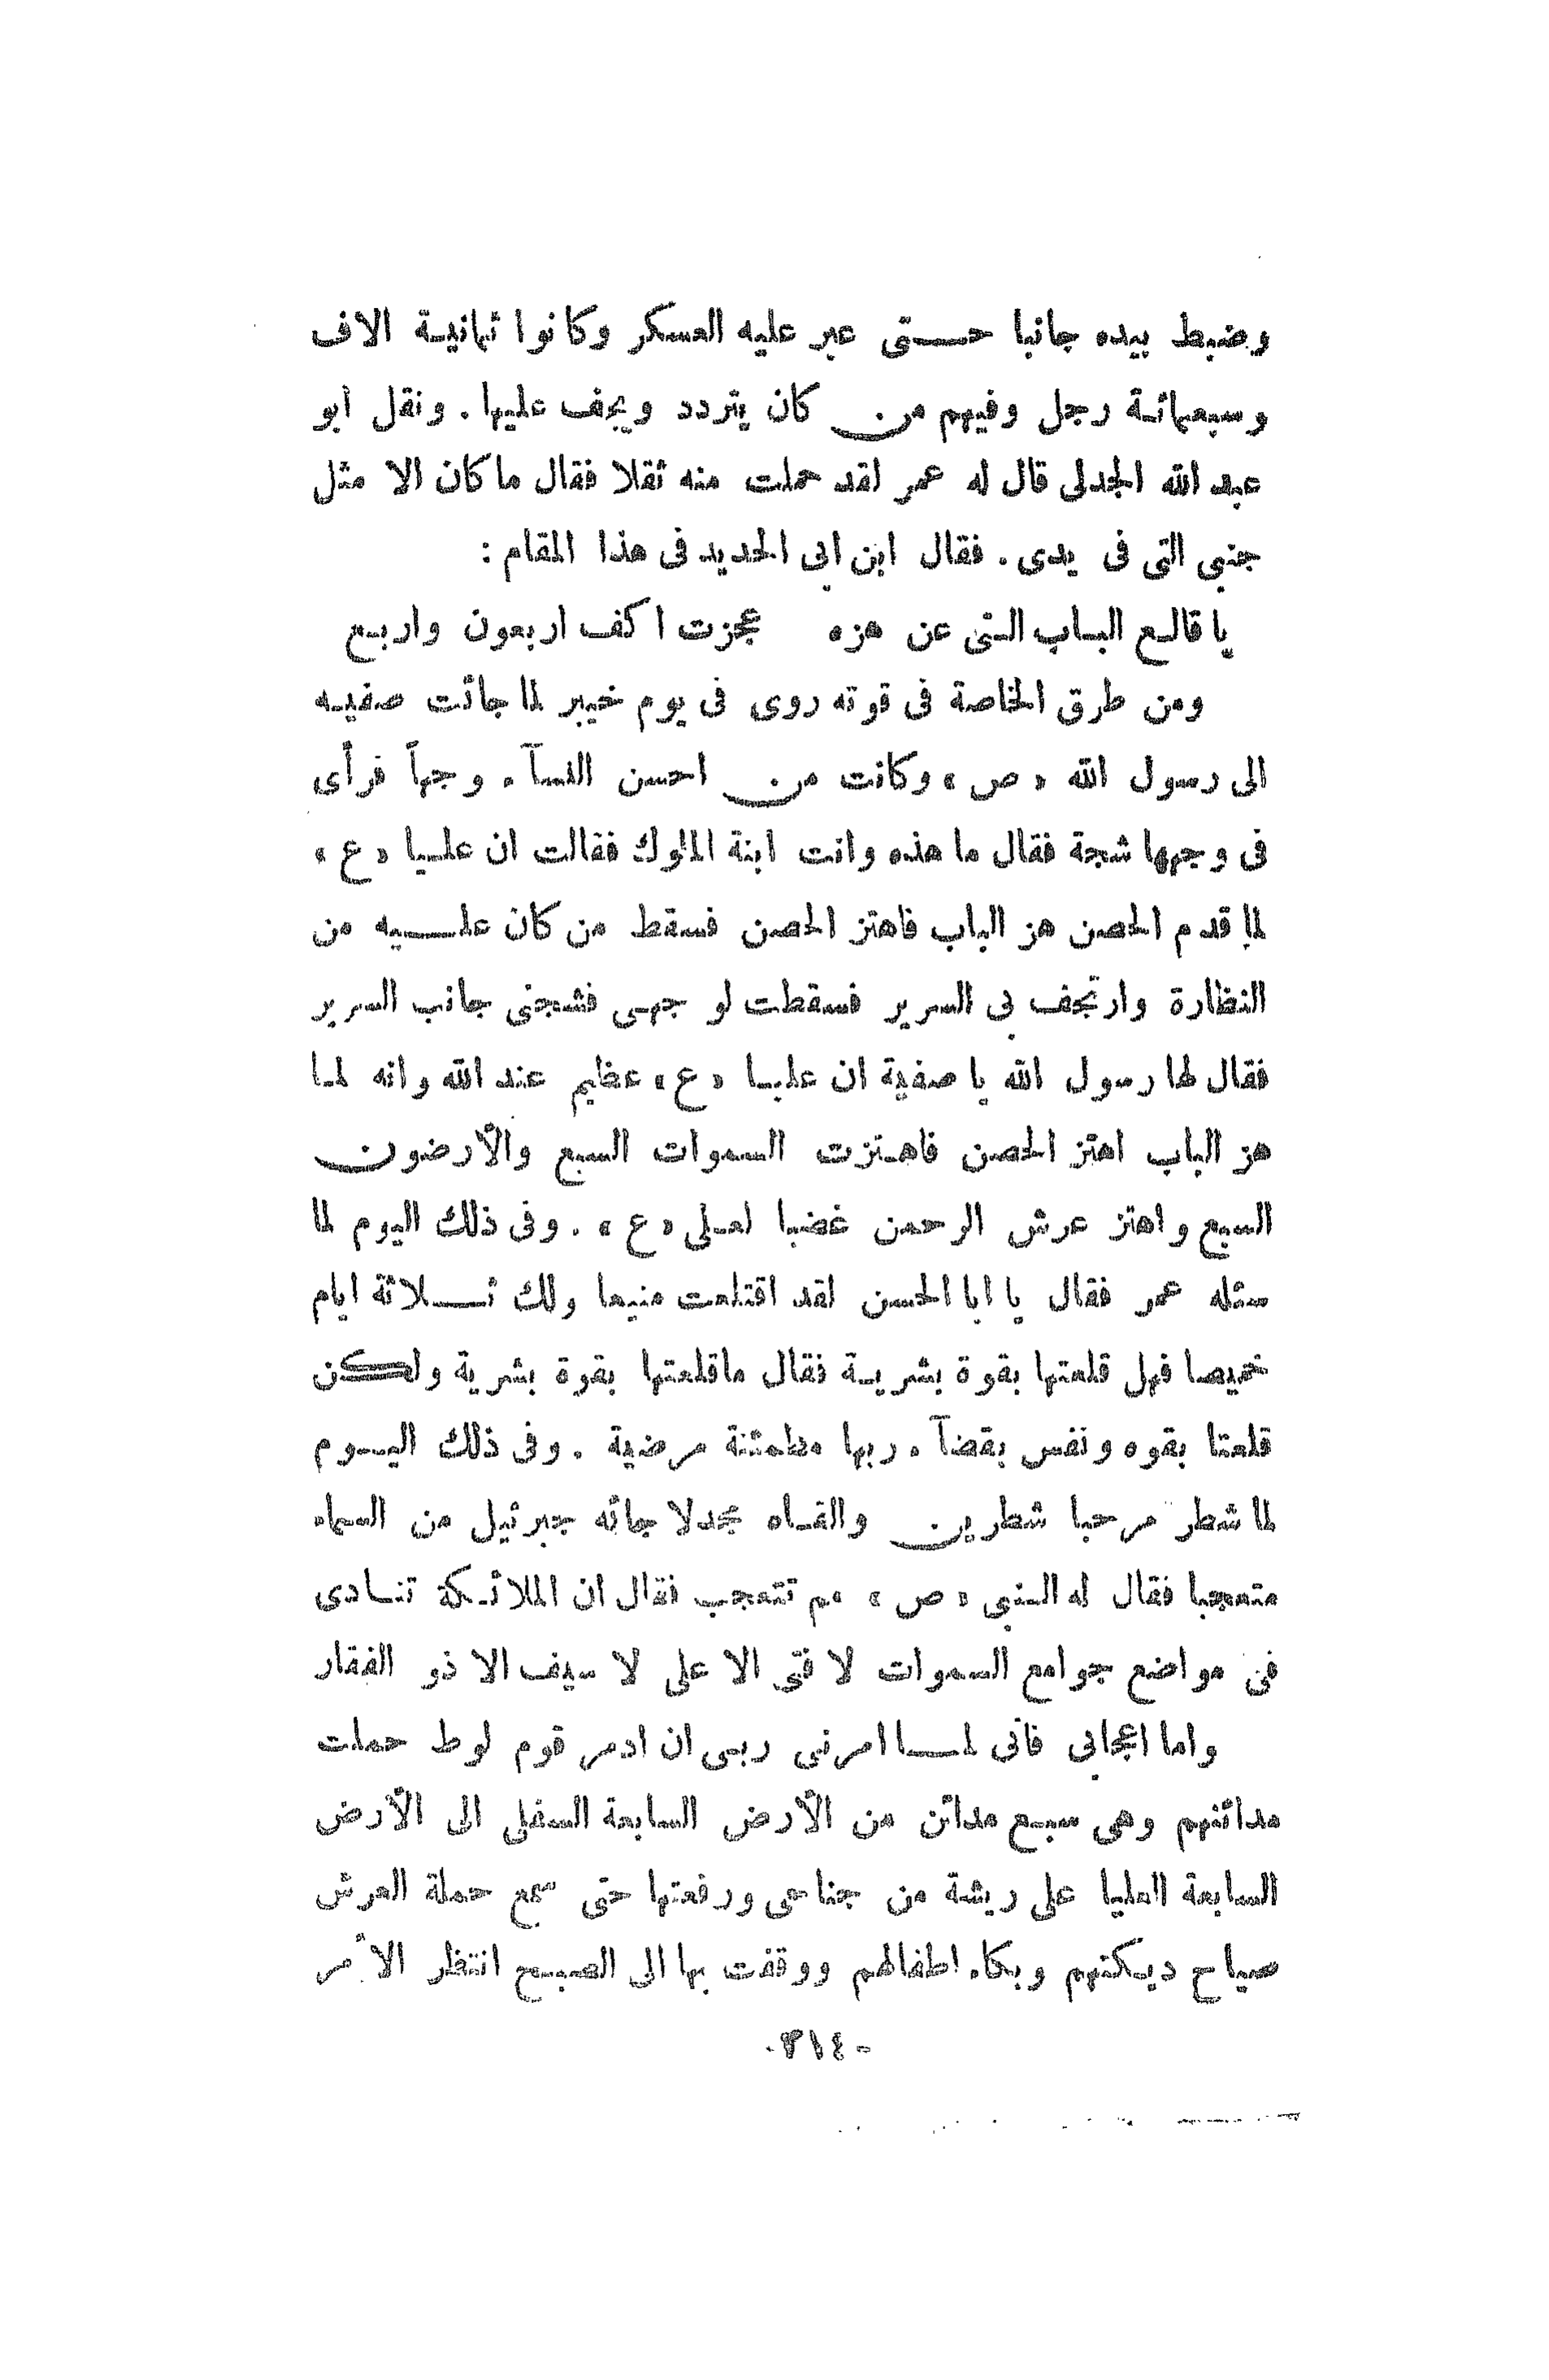 وضبط بيده جانبا حتى عبر عليه العسكر وكانوا ثمانية الاف
وسبعمائة رجل وفيهم من كان يتردد ويجف عليها . ونقل ابو
عبد الله الجدلى قال له عمر لقد حملت منه ثقلا فقال ما كان الا مثل
جنبي التى فى يدى . فقال ابن ابى الحديد فى هذا المقام :
يا قالع الباب التى عن هزه عجزت اكف اربعون واربع
ومن طرق الخاصة فى قوته روى فى يوم خيبر لما جائت صفيه
الى رسول الله « ص » وكانت من احسن النسآء وجهاً فرأى
فى وجهها شجة فقال ما هذه وانت ابنة الملوك فقالت ان عليا « ع »
لما قدم الحصن هز الباب فاهتز الحصن فسقط من كان عليه من
النظارة وارتجف بى السرير فسقطت لو جهى فشجنى جانب السرير
فقال لها رسول الله يا صفية ان عليا « ع » عظيم عند الله وانه لما
هز الباب اهتز الحصن فاهتزت السموات السبع والأرضون
السبع واهتز عرش الرحمن غضبا لعلى « ع » . وفى ذلك اليوم لما
سئله عمر فقال يا ابا الحسن لقد اقتلعت منيعا ولك ثلاثة ايام
خميصا فهل قلعتها بقوة بشرية فقال ماقلعتها بقوة بشرية ولكن
قلعتا بقوه ونفس بقضآء ربها مطمئنة مرضية . وفى ذلك اليوم
لما شطر مرحبا شطرين والقاه مجدلا جائه جبرئيل من السماء
متعجبا فقال له النبى « ص » مم تتعجب فقال ان الملائكة تنادى
فى مواضع جوامع السموات لا فتى الا على لا سيف الا ذو الفقار
واما اعجابى فأنى لما امرنى ربى ان ادمر قوم لوط حملت
مدائنهم وهى سبع مدائن من الأرض السابعة السفلى الى الأرض
السابعة العليا على ريشة من جناحى ورفعتها حتى سمع حملة العرش
صياح ديكتهم وبكاء اطفالهم ووقفت بها الى الصبح انتظر الأمر
- ٣١٤ -